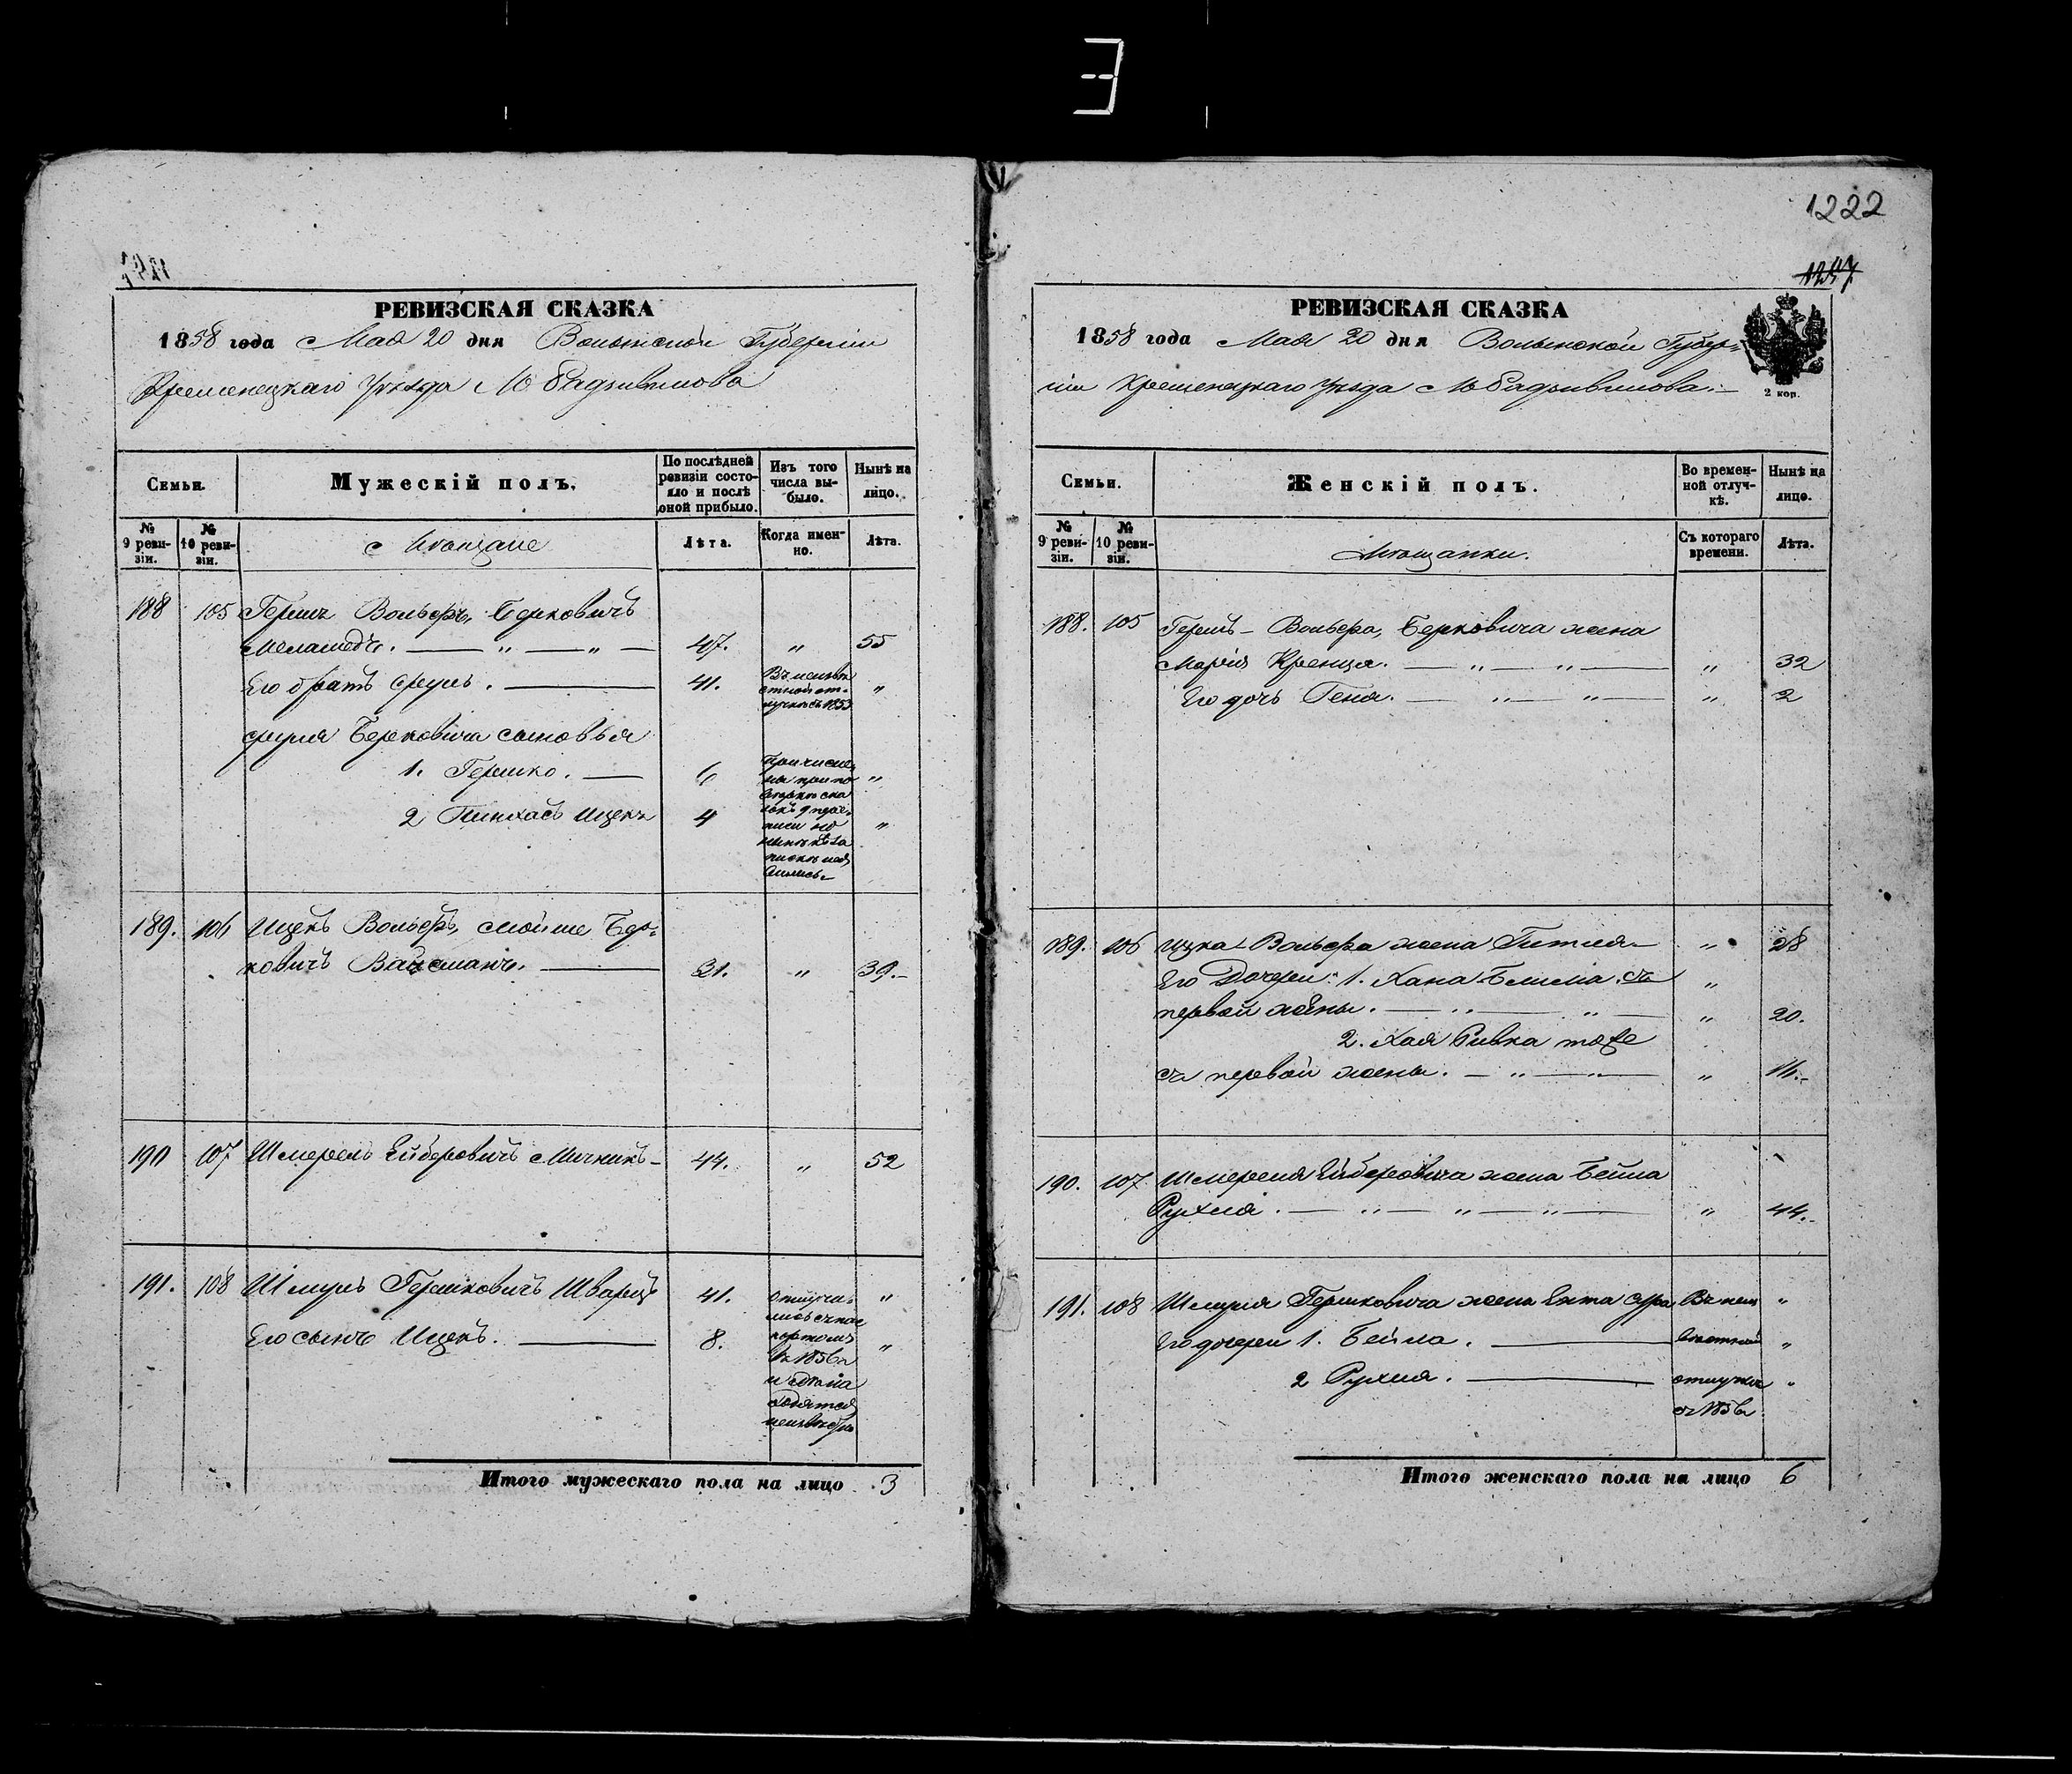 1222
1247
РЕВИЗСКАЯ СКАЗКА
1858 года Мая 20 дня Волынской Губерніи
Кременецкаго Уѣзда М. Радзивилова
Семьи.
Мужескій полъ.
По послѣдней ревизіи состояло и послѣ оной прибыло.
Изъ того числа выбыло.
Нынѣ на лицо.
№ 9 ревизіи.
№ 10 ревизіи.
Мѣщане
Лѣта.
Когда именно.
Лѣта.
188 105 Гершъ Вольфъ Берковичъ
Меламедъ. — „ — „ — 47. „ 55
Его братъ Сруль. — 41. Въ неизвѣстной отлучкѣ съ 1853 „
Сруля Берковича сыновья
1. Гершко. — 6 „
2 Пинхасъ Ицекъ 4 „
189. 106 Ицекъ Вольфъ, Мойше Бер-
ковичъ Вайсманъ. — 31. „ 39.
190 107 Шмерель Ейберовичъ Мичникъ 44. „ 52
191. 108 Шмуль Гершковичъ Шварцъ 41. „
Его сынъ Ицекъ. — 8. „
отлучились съ паспортомъ въ 1856 и гдѣ находятся неизвѣстно
Итого мужескаго пола на лицо 3
РЕВИЗСКАЯ СКАЗКА
1858 года Мая 20 дня Волынской Губер-
ніи Кременецкаго Уѣзда М. Радзивилова
2 коп.
Семьи.
Женскій полъ.
Во временной отлучкѣ.
Нынѣ на лицо.
№ 9 ревизіи.
№ 10 ревизіи.
Мѣщанки.
Съ котораго времени.
Лѣта.
188. 105 Гершъ-Вольфа, Берковича жена
Марія Кренця. — „ — „ — „ 32
Его дочь Геня. — „ — „ — „ 2
189. 106 Ицка-Вольфа жена Гитля „ 28
Его дочери: 1. Хана-Блима съ „
первой жены. — „ — „ — „ 20.
2. Хая Ривка тоже
съ первой жены. — „ — „ — „ 16.
190. 107 Шмереля Ейберовича жена Бейла
Рухля. — „ — „ — „ — „ 44.
191. 108 Шмуля Гершковича жена Ента Сура Въ неиз „
Его дочери 1. Бейла. — вѣстной „
2 Рухля. — отлучкѣ „
съ 1856
Итого женскаго пола на лицо 6